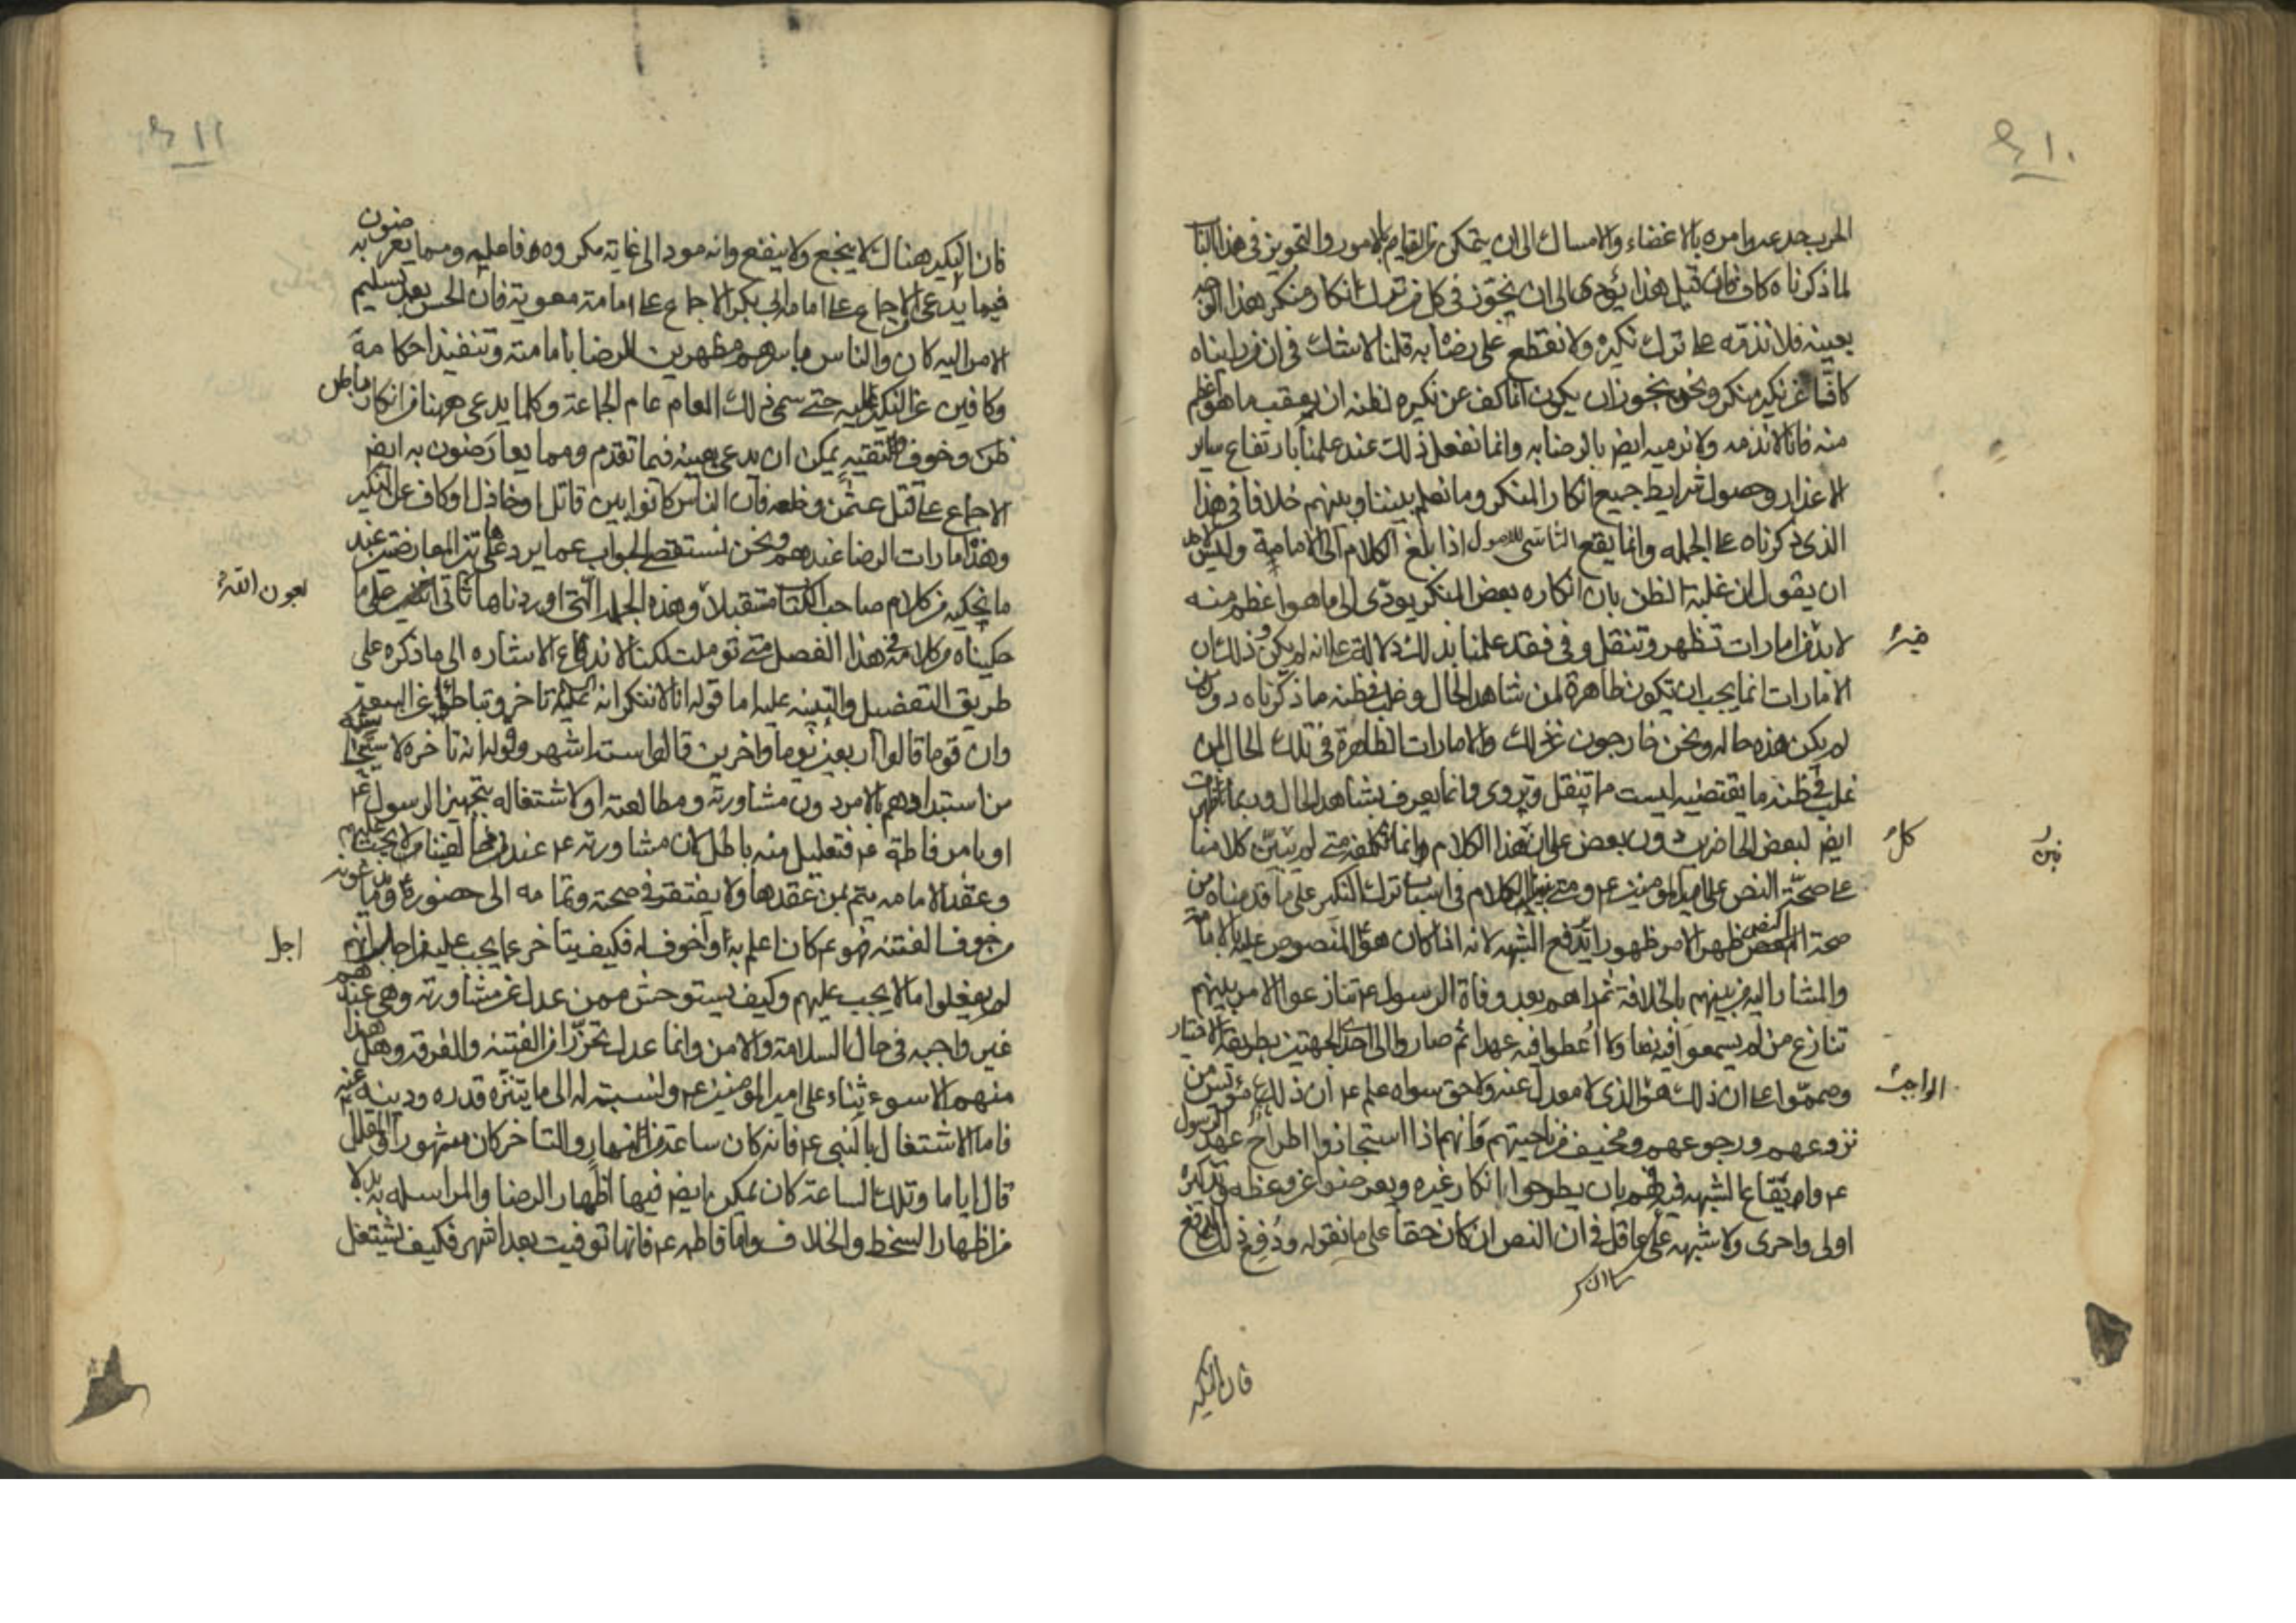 ١٠
الحرب جد عدوا مره بالاغضاء والامساك الى ان يتمكن من القيام بالامور والتجويز فى هذا الباب
لما ذكرناه كاف فان قيل هذا يؤدى الى ان يجوز فى كل من ترك انكار منكر هذا الوجه
بعينه فلا نذمّه على ترك نكيره ولا نقطع على رضاه به قلنا لا شك فى ان من رايناه
كافّا عن نكير منكر ونحن نجوز ان يكون انما كف عن نكيره لظنه ان يعقب ما هو اعظم
منه فانا لا نذمه ولا نرميه ايضر بالرضا به وانما نفعل ذلك عند علمنا بارتفاع ساير
الاعذار وحصول شرايط جميع انكار المنكر وما نعلم بيننا وبينهم خلافا فى هذا
الذى ذكرناه على الجمله وانما يقع التناسى للاصول اذا بلغ الكلام الى الامامية وليس لاحد
ان يقول ان غلبة الظن بان انكاره بعض المنكر يودّى الى ما هو اعظم منه
لابد من امارات تظهر وتنقل وفى فقد علمنا بذلك دلالة على انه لم يكن وذلك ان
الامارات انما يجب ان تكون ظاهرة لمن شاهد الحال وغلب فى ظنه ما ذكرناه دون من
لم يكن هذه حاله ونحن خارجون عن ذلك والامارات الظاهرة فى تلك الحال لمن
غلب فى ظنه ما يقتضيه ليست مما تنقل وتروى وانما يعرف بشاهد الحال وربما ظهرت
ايضر لبعض الحاضرين دون بعض على ان هذا الكلام وانما نتكلفه متى لم نبن كلامنا
على صحّة النص على امير المومنين ع‍ ومتى بنينا الكلام فى اسباب ترك النكير على ما قدمناه من
صحة النص ظهر الامر ظهورا يدفع الشبهه لانه اذا كان هو المنصوص عليه بالامامة
والمشار اليه من بينهم بالخلافة ثم راهم بعد وفاة الرسول ع‍ تنازعوا الامر بينهم
تنازع من لم يسمعوا فيه نصا ولا اعطوا فيه عهدا ثم صاروا الى احدى الجهتين بطريقة الاختيار
وصمموا على ان ذلك هو الذى لا معدل عنه ولا حق سواه علم ع‍ ان ذلك موئس من
نزوعهم ورجوعهم ومخيف من ناحيتهم وانهم اذا استجازوا اطراح عهد الرسول
ع‍ وايقاع الشبهه فيه فهم بان يطرحوا انكار غيره ويعرضوا عن وعظه وتذكيره
اولى واحرى ولا شبهه على عاقل فى ان النص ان كان حقا على ما نقوله ودُفِع ذلك الدفع
فان النكير
خيره
كل
نبن
الواجب
١١
فان النكير هناك لا ينجع ولا ينفع وانه مود الى غاية مكروه فاعليه ومما يعرضون به
فيما يدعى من الاجماع على امامه ابى بكر الاجماع على امامة معوية فان الحسن بعد تسليم
الامر اليه كان والناس باسرهم مظهرين للرضا بامامته وتنفيذ احكامه
وكافين عن النكير عليه حتى سمى ذلك العام عام الجماعة وكلما يدعى ههنا من انكار باطن
ظن وخوف والتقيه يمكن ان يدعى بعينه فيما تقدم ومما يعارضون به ايضر
الاجماع على قتل عثمن وخلعه فان الناس كانوا بين قاتل او خاذل او كاف عن النكير
وهذه امارات الرضا عندهم ونحن نستقصى الجواب عما يرد على هاتين المعارضتين عند
ما نحكيه من كلام صاحب الكتاب مستقبلا وهذه الجمله التى اوردناها تاتى على ما
حكيناه من كلامه فى هذا الفصل متى توملت لكنا لا ندع الاشاره الى ما ذكره على
طريق التفصيل والتبينه عليه اما قوله انا لا ننكر انه عليه السلم تاخر وتباطؤ عن البيعة
وان قوما قالوا اربعين يوما واخرين قالوا ستة اشهر وقوله انه تاخره لاستيحاشه
من استبدادهم بالامر دون مشاورته ومطالعته او لاشتغاله بتجهيز الرسول ع‍
او بامر فاطمة ع‍ فتعليل منه باطل لان مشاورته ع‍ عند مخالفينا لا يجب عليهم
وعقد الامامه يتم بمن عقدها ولا يفتقر فى صحته وتمامه الى حضوره ع‍ وما يدعونه
من خوف الفتنه فهو ع‍ كان اعلم به واخوف له فكيف يتاخر عما يجب عليه من اجل انهم
لم يفعلوا ما لا يجب عليهم وكيف يستوحش ممن عدل عن مشاورته وهى عندهم
غير واجبه فى حال السلامة والامن وانما عدل تحرّزا من الفتنه والفرقه وهل هذا
منهم الا سوء ثناء على امير المومنين ع‍ ونسبته له الى ما يتنزه قدره ودينه عنه
فاما الاشتغال بالنبى ع‍ فانه كان ساعة من النهار والتاخر كان شهورا والمقلل
قال اياما وتلك الساعة كان يمكن ايضر فيها اظهار الرضا والمراسله به بدلا
من اظهار السخط والخلاف واما فاطمه ع‍ فانها توفيت بعد اشهر فكيف يشتغل
بعون الله
اجل